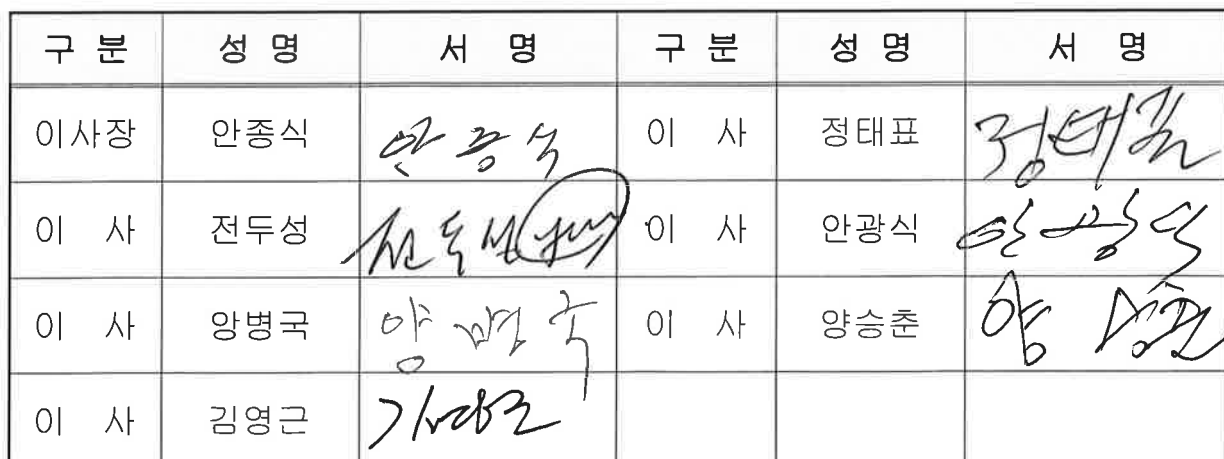 구 분 성 명 서 명 구 분 성 명 서 명
이사장 안종식 안종식 이 사 정태표 정태표
이 사 전두성 전두성 이 사 안광식 안광식
이 사 앙병국 양병국 이 사 양승춘 양승춘
이 사 김영근 김영근